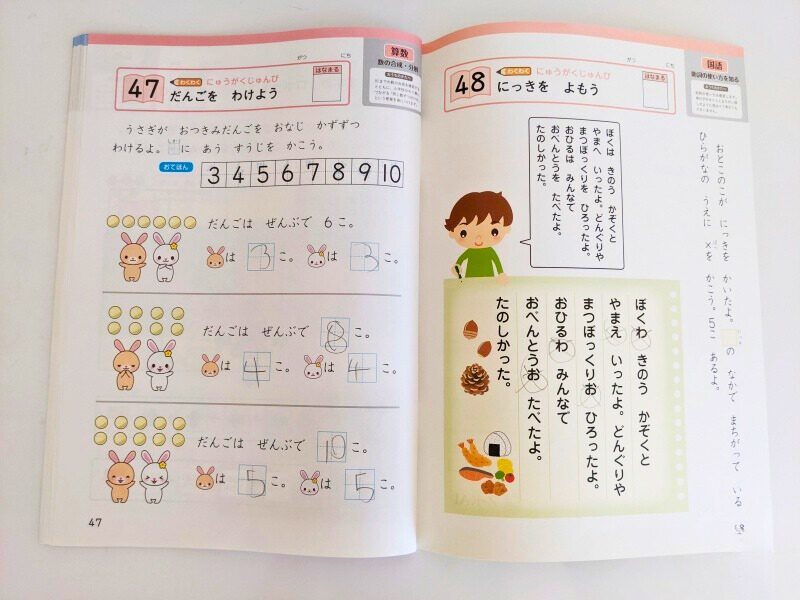 がつ にち
算数
数の合成・分解
47
わくわく
にゅうがくじゅんび
だんごを わけよう
はなまる
うさぎが おつきみだんごを おなじ かずずつ
わけるよ。 に あう すうじを かこう。
おてほん
3 4 5 6 7 8 9 10
だんごは ぜんぶで 6こ。
は 3 こ。 は 3 こ。
だんごは ぜんぶで 8 こ。
は 4 こ。 は 4 こ。
だんごは ぜんぶで 10 こ。
は 5 こ。 は 5 こ。
47
がつ にち
国語
助詞の使い方を知る
48
わくわく
にゅうがくじゅんび
にっきを よもう
はなまる
おとこのこが にっきを かいたよ。 の なかで まちがって いる
ひらがなの うえに ×を かこう。5こ あるよ。
ぼくは きのう かぞくと
やまへ いったよ。どんぐりや
まつぼっくりを ひろったよ。
おひるは みんなで
おべんとうを たべたよ。
たのしかった。
ぼくわ きのう かぞくと
やまえ いったよ。どんぐりや
まつぼっくりお ひろったよ。
おひるわ みんなで
おべんとうお たべたよ。
たのしかった。